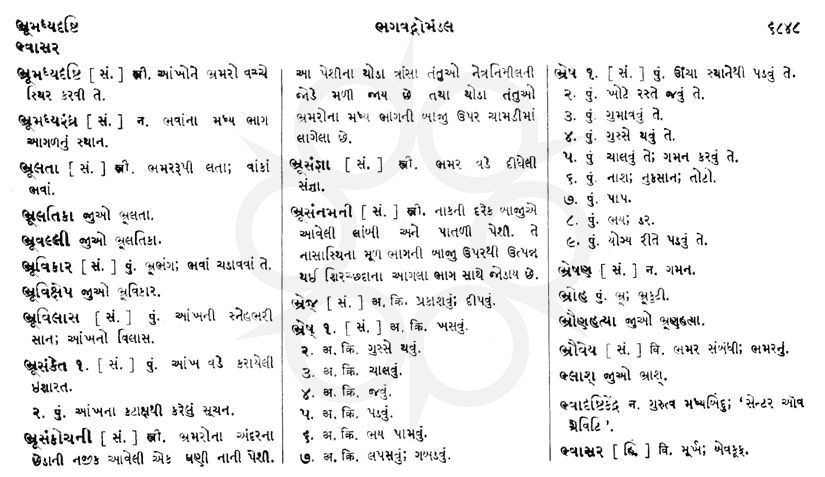 ભ્રૂમધ્યદૃષ્ટિ
ભ્વાસર
ભગવદ્ગોમંડલ
૬૮૪૮
ભ્રૂમધ્યદૃષ્ટિ [ સં. ] સ્ત્રી. આંખોને ભ્રમરો વચ્ચે
સ્થિર કરવી તે.
ભ્રૂમધ્યરંધ્ર [ સં. ] ન. ભવાંના મધ્ય ભાગ
આગળનું સ્થાન.
ભ્રૂલતા [ સં. ] સ્ત્રી. ભમરરૂપી લતા; વાંકાં
ભવાં.
ભ્રૂલતિકા જુઓ ભ્રૂલતા.
ભ્રૂવલ્લી જુઓ ભ્રૂલતિકા.
ભ્રૂવિકાર [ સં. ] પું. ભ્રૂભંગ; ભવાં ચડાવવાં તે.
ભ્રૂવિક્ષેપ જુઓ ભ્રૂવિકાર.
ભ્રૂવિલાસ [ સં. ] પું. આંખની સ્નેહભરી
સાન; આંખનો વિલાસ.
ભ્રૂસંકેત ૧. [ સં. ] પું. આંખ વડે કરાયેલી
ઇશારત.
૨. પું. આંખના કટાક્ષથી કરેલું સૂચન.
ભ્રૂસંકોચની [ સં. ] સ્ત્રી. ભ્રમરોના અંદરના
છેડાની નજીક આવેલી એક ઘણી નાની પેશી.
આ પેશીના થોડા ત્રાંસા તંતુઓ નેત્રનિમીલની
જોડે મળી જાય છે તથા થોડા તંતુઓ
ભ્રમરોના મધ્ય ભાગની બાજુ ઉપર ચામડીમાં
લાગેલા છે.
ભ્રૂસંજ્ઞા [ સં. ] સ્ત્રી. ભમર વડે દીધેલી
સંજ્ઞા.
ભ્રૂસંનમની [ સં. ] સ્ત્રી. નાકની દરેક બાજુએ
આવેલી લાંબી અને પાતળી પેશી. તે
નાસાસ્થિના મૂળ ભાગની બાજુ ઉપરથી ઉત્પન્ન
થઈ શિરચ્છદાના આગલા ભાગ સાથે જોડાય છે.
ભ્રેજ્ [ સં. ] અ. ક્રિ. પ્રકાશવું; દીપવું.
ભ્રેષ્ ૧. [ સં. ] અ. ક્રિ. ખસવું.
૨. અ. ક્રિ. ગુસ્સે થવું.
૩. અ. ક્રિ. ચાલવું.
૪. અ. ક્રિ. જવું.
૫. અ. ક્રિ. પડવું.
૬. અ. ક્રિ. ભય પામવું.
૭. અ. ક્રિ. લપસવું; ગબડવું.
ભ્રેષ ૧. [ સં. ] પું. ઊંચા સ્થાનેથી પડવું તે.
૨. પું. ખોટે રસ્તે જવું તે.
૩. પું. ગુમાવવું તે.
૪. પું. ગુસ્સે થવું તે.
૫ પું ચાલવું તે; ગમન કરવું તે.
૬. પું. નાશ; નુકસાન; તોટો.
૭. પું. પાપ.
૮. પું. ભય; ડર.
૯. પું. યોગ્ય રીતે પડવું તે.
ભ્રેષણ [ સં. ] ન. ગમન.
ભ્રોહ પું. ભ્રૂ; ભ્રૂકુટી.
ભ્રૌણહત્યા જુઓ ભ્રૂણહત્યા.
ભ્રૌવેય [ સં. ] વિ. ભમર સંબંધી; ભમરનું.
ભ્લાશ્ જુઓ ભ્રાશ્.
ભ્વાદષ્ટિકેંદ્ર ન. ગુરુત્વ મધ્યબિંદુ; ‘સેન્ટર ઓવ
ગ્રેવિટિ’.
ભ્વાસર [ હિં. ] વિ. મૂર્ખ; બેવકૂફ.